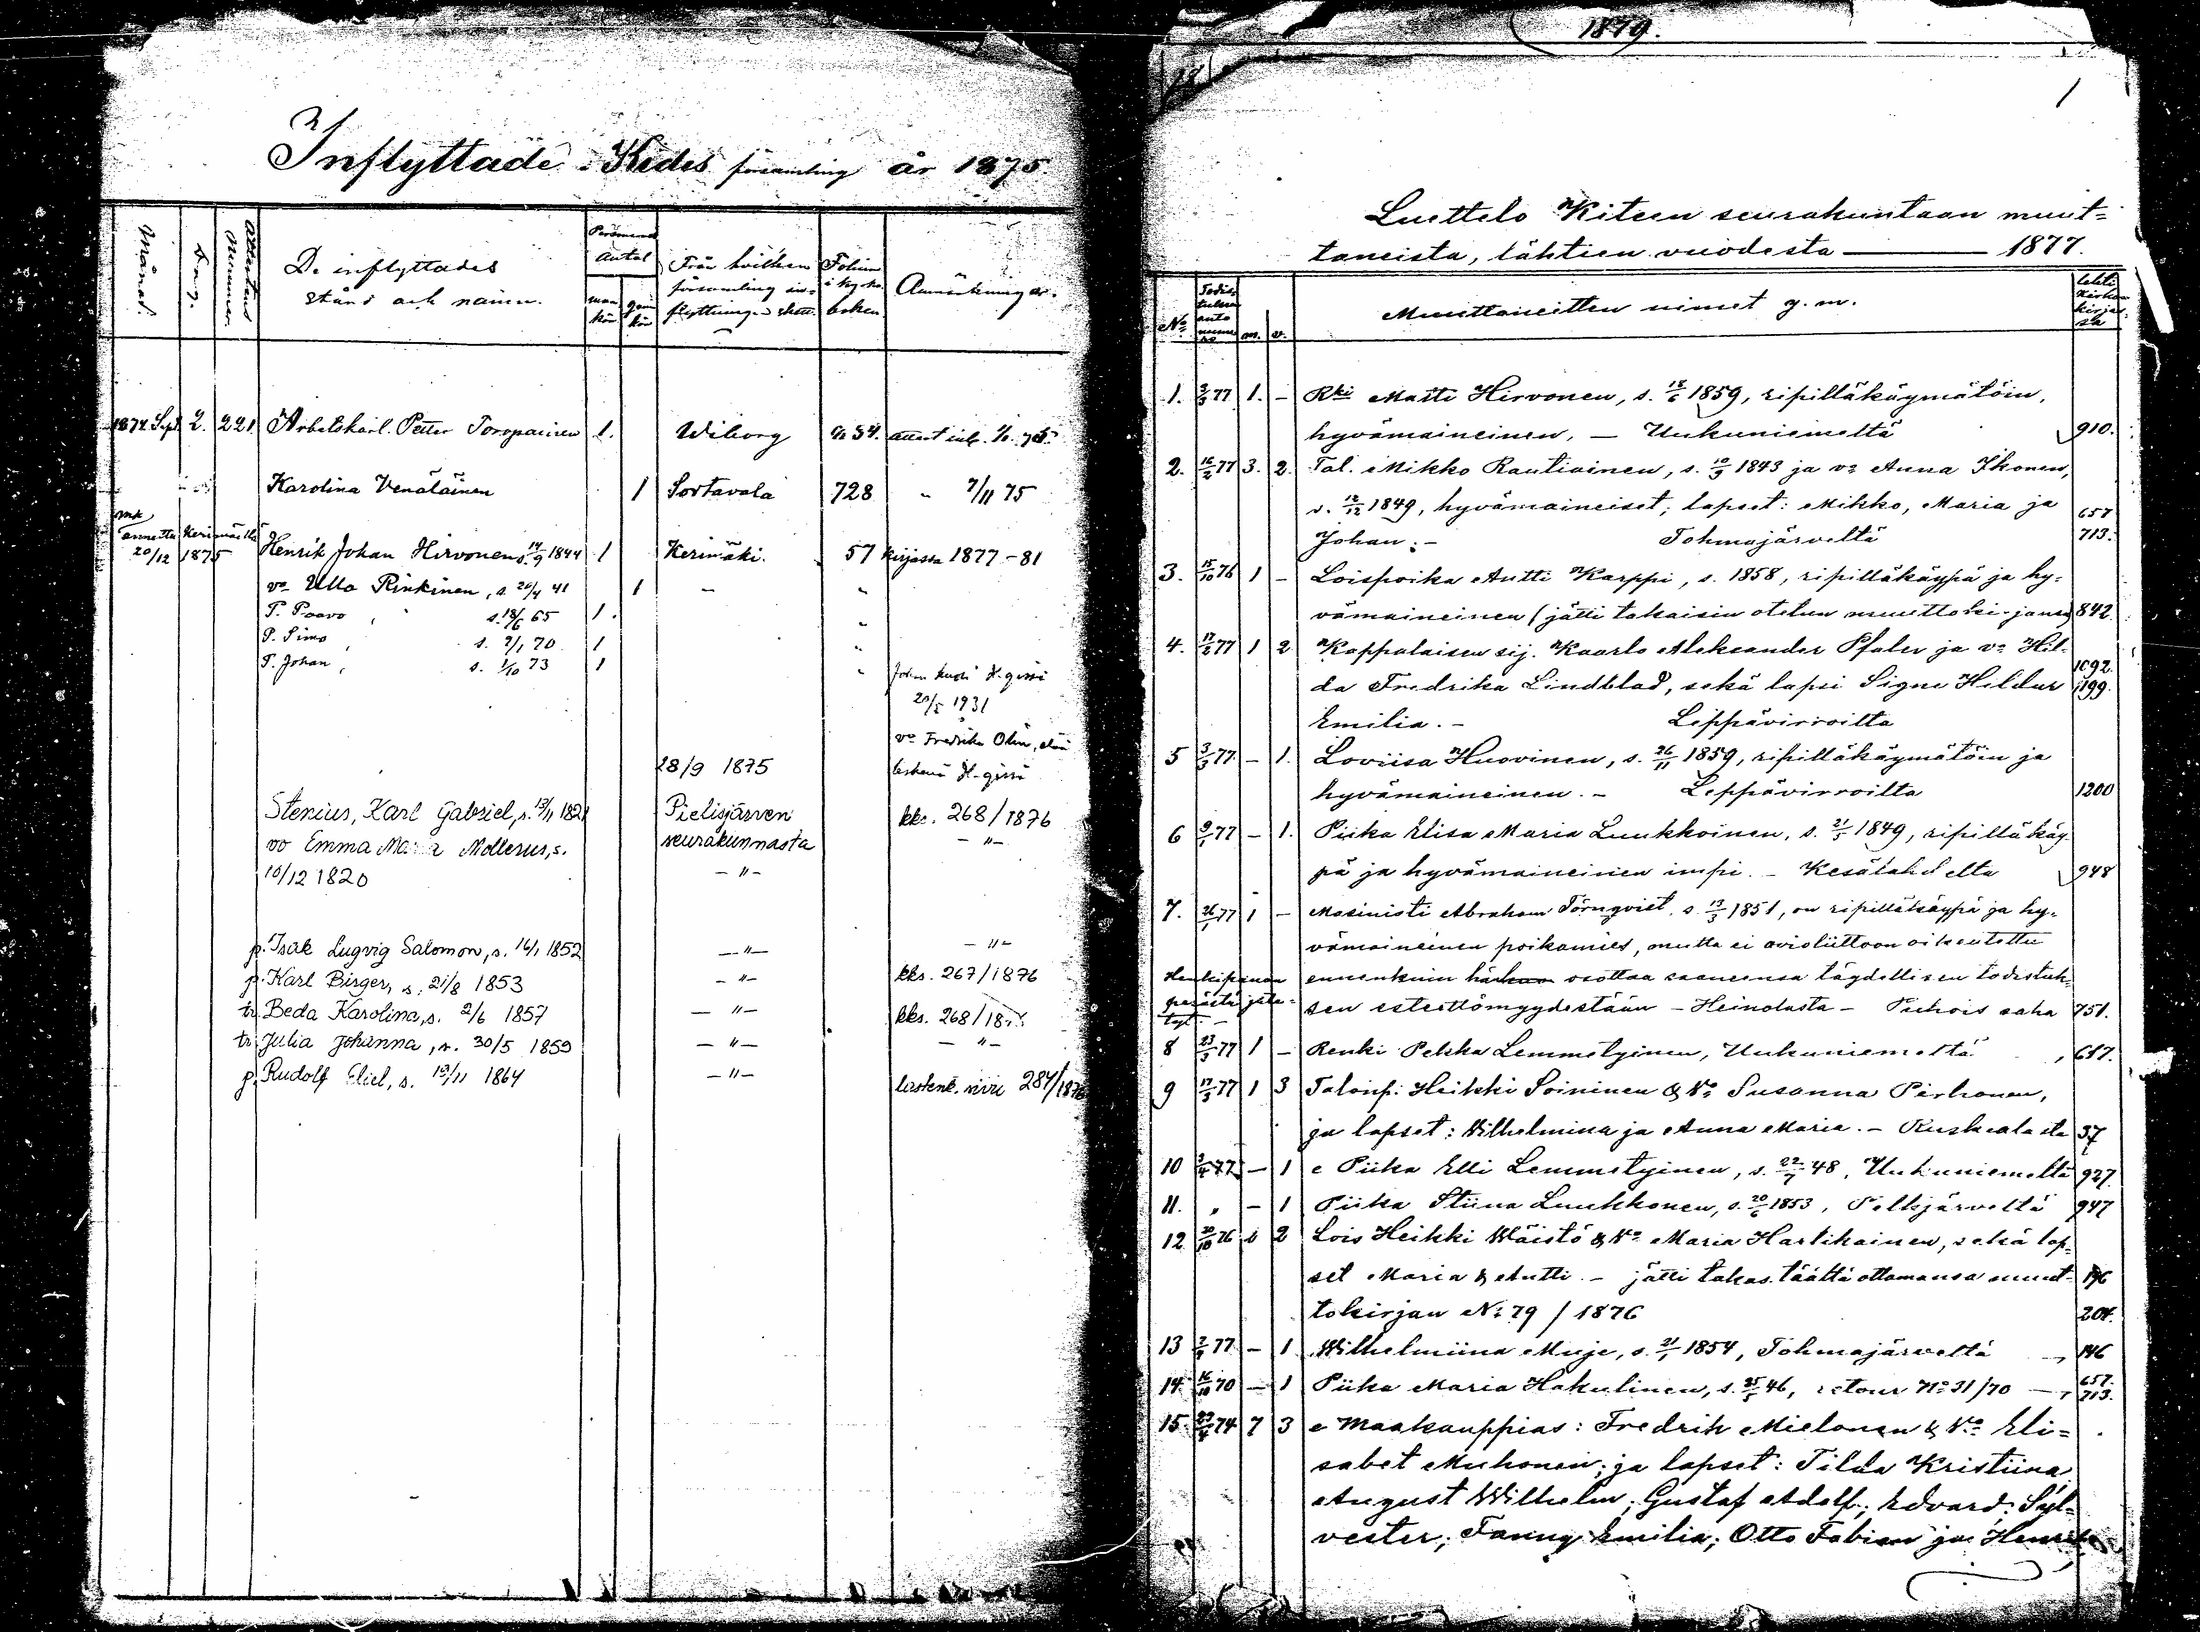 Inflyttade i Kides församling år 1875.
Månad.
Dag.
Attestens Nummer
De inflyttades
stånd och namn.
Personernas
Antal
man kön
qvin kön
Från hvilken
församling in-
flyttningen skett.
Folium
i ky.ko
boken
Anmärkningar.
1874 Sept. 2. 221. Arbetskarl. Petter Toropainen 1. Wiborg 54. attest inl. 75
Karolina Venäläinen 1 Sortavala 728 " 7/11 75
annettu Kerimäeltä
20/12 1875 Henrik Johan Hirvonen s. 14/9 1844 1 Kerimäki. 57 kirjassa 1877-81
vo Ulla Rinkinen, s. 20/4 41 1 – "
P. Paavo s. 18/6 65 1. "
P. Simo s. 2/1 70 1 "
P. Johan, s. 1/10 73 1 " Johan kuoli H:gissä
20/5 1931
vo Fredrika Olin, elää
leskenä H-gissä
28/9 1875
Stenius, Karl Gabriel, s. 13/11 1821 Pielisjärven kks. 268/1876
vo Emma Maria Mollerus, s. seurakunnasta – " –
10/12 1820 – " –
p. Isak Lugvig Salomon, s. 16/1 1852 – " – – " –
p. Karl Birger, s. 21/8 1853 – " – kks. 267/1876
tr. Beda Karolina, s. 2/6 1857 – " – kks. 268/18
tr. Julia Johanna, s. 30/5 1859 – " – – " –
p. Rudolf Eliel, s. 19/11 1864 – " – lastenk. sivu 284/1876
1879.
1
Luettelo Kiteen seurakuntaan muut-
taneista, lähtien vuodesta — 1877.
No
Todistuksen anto numero
m.
v.
Muuttaneitten nimet y. m.
Lehti kirkon kirjassa
1. 3/3 77 1. – Rki Matti Hirvonen, s. 18/6 1859, ripilläkäymätöin,
hyvämaineinen. – Uukuniemeltä 910.
2. 16/2 77 3. 2. Tal. Mikko Rautiainen, s. 10/9 1843 ja vo Anna Ikonen,
s. 12/12 1849, hyvämaineiset; lapset: Mikko, Maria ja 657
Johan. – Tohmajärveltä 713.
3. 15/10 76 1 – Loispoika Antti Karppi, s. 1858, ripilläkäypä ja hy-
vämaineinen (jätti takaisin otetun muuttokirjansa) 842.
4. 17/2 77 1 2 Kappalaisen sij. Kaarlo Aleksander Pfaler ja vo Hil-
da Fredrika Lindblad, sekä lapsi Signe Heldur 1092. 1199.
Emilia. – Leppävirroilta
5 3/3 77. – 1. Loviisa Huovinen, s. 26/11 1859, ripilläkäymätöin ja
hyvämaineinen. – Leppävirroilta 1200
6 77 – 1. Piika Elisa Maria Luukkoinen, s. 21/5 1849, ripilläkäy-
pä ja hyvämaineinen impi. – Kesälahdelta 948
7. 26/1 77 1 – Masinisti Abraham Törnqvist, s. 13/3 1851, on ripilläkäypä ja hy-
vämaineinen poikamies, mutta ei avioliittoon oikeutettu
ennenkuin hän osottaa saaneensa täydellisen todistuk-
sen esteettömyydestään – Heinolasta – Puhois saha 751.
8 23/3 77 1 – Renki Pekka Lemmetyinen, Uukuniemeltä 657.
9 17/3 77 1 3 Talonp. Heikki Soininen & Vo Susanna Pirhonen,
ja lapset: Wilhelmina ja Anna Maria. – Ruskealasta 37
10 3/4 77 – 1 e Piika Elli Lemmetyinen, s. 22/7 48, Uukuniemeltä 927.
11. " – 1 Piika Stiina Luukkonen, s. 20/6 1853, Pelkjärveltä 947
12 20/10 76 2 Lois Heikki Wäistö & Vo Maria Hartikainen, sekä lap-
set Maria & Antti. – jätti takas täältä ottamansa muut- 196
tokirjan No 79 / 1876 204.
13 77 – 1 Wilhelmiina Muje, s. 21/1 1854, Tohmajärveltä 146
14. 16/10 70 – 1 Piika Maria Hakulinen, s. 25/5 46, retour No 31/70 657. 713.
15. 23/4 74 7 3 e Maakauppias: Fredrik Mielonen & Vo Eli-
sabet Muhonen; ja lapset: Tilda Kristiina
August Wilhelm; Gustaf Adolf; Edvard; Syl-
vester; Fanny Emilia; Otto Fabian ja Henrik